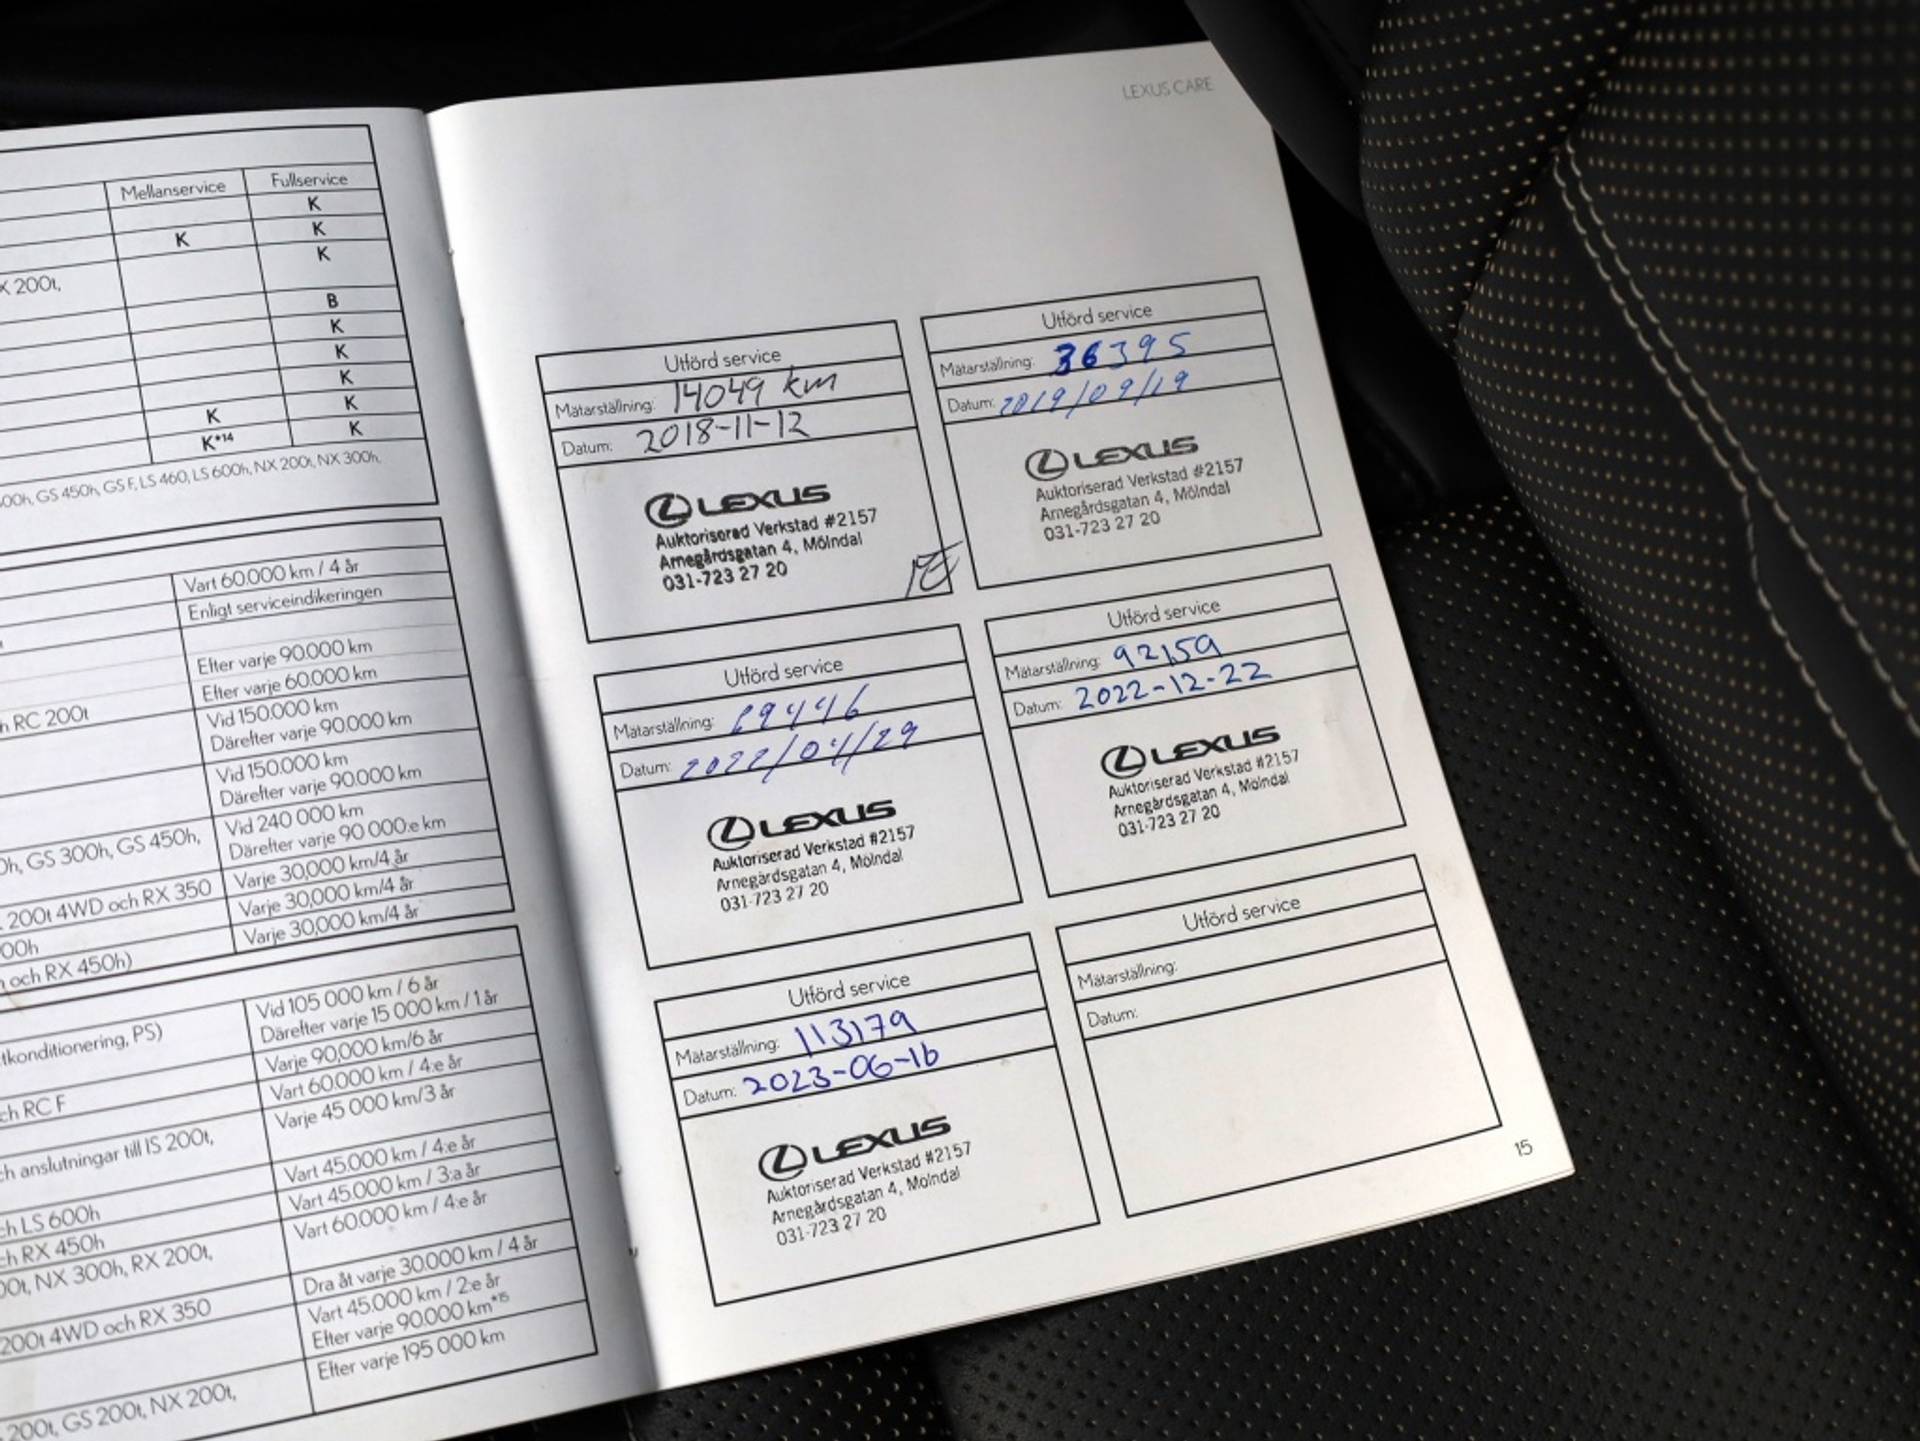 Mellanservice Fullservice
K
K K
K
X 200t,
B
K
K
K
K K
K*14 K
GS 450h, GS F, LS 460, LS 600h, NX 200t, NX 300h,
Vart 60.000 km / 4 år
Enligt serviceindikeringen
Efter varje 90.000 km
Efter varje 60.000 km
h RC 200t
Vid 150.000 km
Därefter varje 90.000 km
Vid 150.000 km
Därefter varje 90.000 km
0h, GS 300h, GS 450h,
Vid 240 000 km
Därefter varje 90 000:e km
Varje 30,000 km/4 år
200t 4WD och RX 350
Varje 30,000 km/4 år
00h
Varje 30,000 km/4 år
och RX 450h)
Vid 105 000 km / 6 år
Därefter varje 15 000 km / 1 år
tkonditionering, PS)
Varje 90,000 km/6 år
ch RC F
Vart 60.000 km / 4:e år
Varje 45 000 km/3 år
h anslutningar till IS 200t,
Vart 45.000 km / 4:e år
ch LS 600h
Vart 45.000 km / 3:a år
ch RX 450h
Vart 60.000 km / 4:e år
00t, NX 300h, RX 200t,
Dra åt varje 30.000 km / 4 år
200t 4WD och RX 350
Vart 45.000 km / 2:e år
Efter varje 90.000 km*15
Efter varje 195 000 km
200t, GS 200t, NX 200t,
LEXUS CARE
Utförd service
Mätarställning: 14049 km
Datum: 2018-11-12
LEXUS
Auktoriserad Verkstad #2157
Arnegårdsgatan 4, Mölndal
031-723 27 20
Utförd service
Mätarställning: 36395
Datum: 2019/09/19
LEXUS
Auktoriserad Verkstad #2157
Arnegårdsgatan 4, Mölndal
031-723 27 20
Utförd service
Mätarställning: 69446
Datum: 2022/04/29
LEXUS
Auktoriserad Verkstad #2157
Arnegårdsgatan 4, Mölndal
031-723 27 20
Utförd service
Mätarställning: 92159
Datum: 2022-12-22
LEXUS
Auktoriserad Verkstad #2157
Arnegårdsgatan 4, Mölndal
031-723 27 20
Utförd service
Mätarställning: 113179
Datum: 2023-06-16
LEXUS
Auktoriserad Verkstad #2157
Arnegårdsgatan 4, Mölndal
031-723 27 20
Utförd service
Mätarställning:
Datum:
15